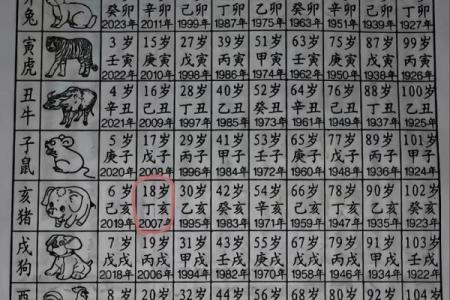 卯兔 癸卯 辛卯 己卯 丁卯 乙卯 癸卯 辛卯 己卯 丁卯
2023年 2011年 1999年 1987年 1975年 1963年 1951年 1939年 1927年
寅虎 3岁 15岁 27岁 39岁 51岁 63岁 75岁 87岁 99岁
壬寅 庚寅 戊寅 丙寅 甲寅 壬寅 庚寅 戊寅 丙寅
2022年 2010年 1998年 1986年 1974年 1962年 1950年 1938年 1926年
丑牛 4岁 16岁 28岁 40岁 52岁 64岁 76岁 88岁 100岁
辛丑 己丑 丁丑 乙丑 癸丑 辛丑 己丑 丁丑 乙丑
2021年 2009年 1997年 1985年 1973年 1961年 1949年 1937年 1925年
子鼠 5岁 17岁 29岁 41岁 53岁 65岁 77岁 89岁 101岁
庚子 戊子 丙子 甲子 壬子 庚子 戊子 丙子 甲子
2020年 2008年 1996年 1984年 1972年 1960年 1948年 1936年 1924年
亥猪 6岁 18岁 30岁 42岁 54岁 66岁 78岁 90岁 102岁
己亥 丁亥 乙亥 癸亥 辛亥 己亥 丁亥 乙亥 癸亥
2019年 2007年 1995年 1983年 1971年 1959年 1947年 1935年 1923年
戌狗 7岁 19岁 31岁 43岁 55岁 67岁 79岁 91岁 103岁
戊戌 丙戌 甲戌 壬戌 庚戌 戊戌 丙戌 甲戌 壬戌
2018年 2006年 1994年 1982年 1970年 1958年 1946年 1934年 1922年
酉 8岁 20岁 32岁 44岁 56岁 68岁 80岁 92岁 104岁